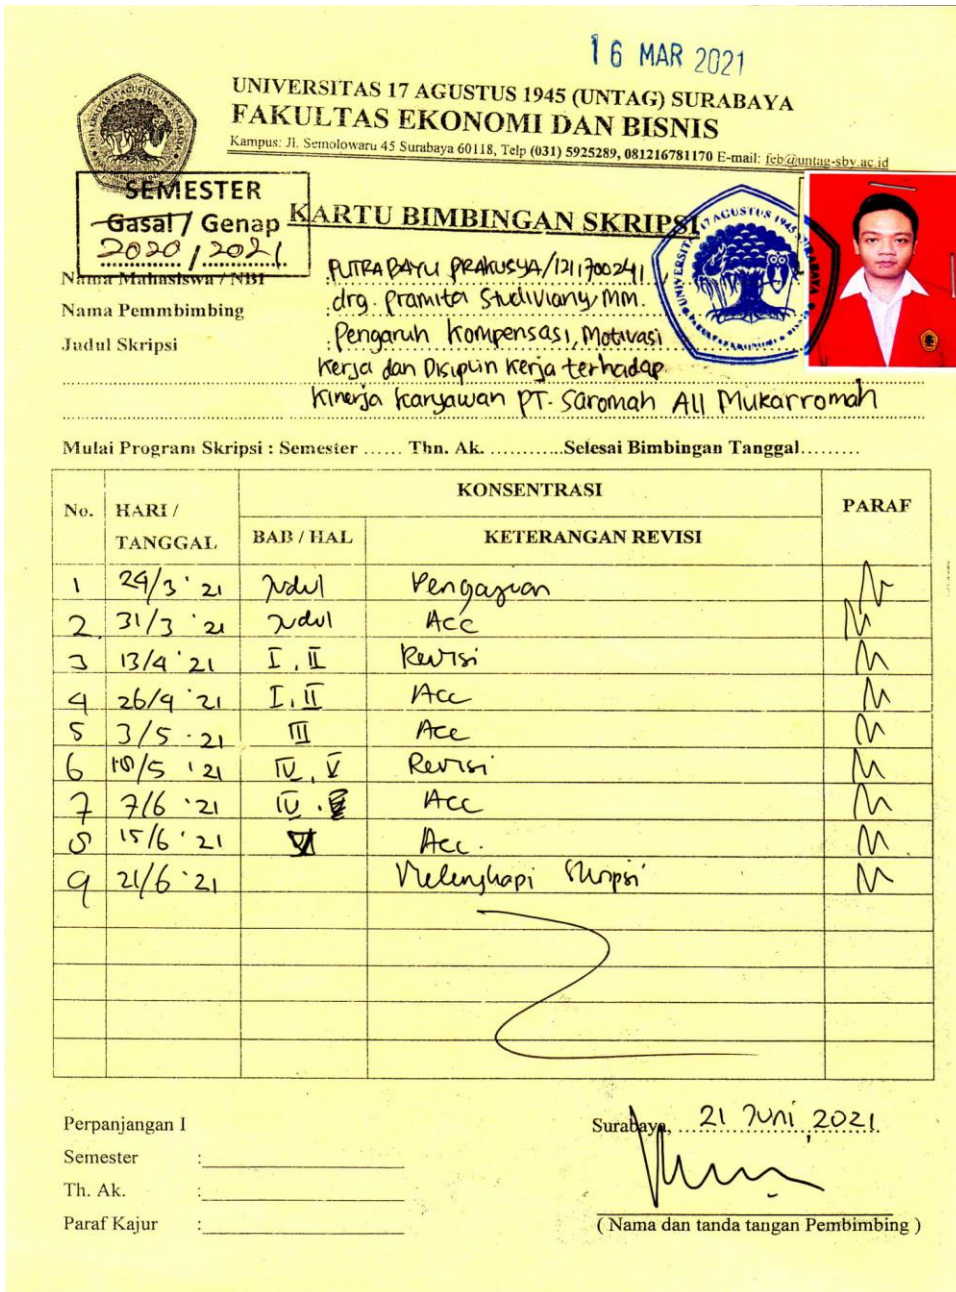 16 MAR 2021
UNIVERSITAS 17 AGUSTUS 1945 (UNTAG) SURABAYA
FAKULTAS EKONOMI DAN BISNIS
Kampus: Jl. Semolowaru 45 Surabaya 60118, Telp (031) 5925289, 081216781170 E-mail: feb@untag-sby.ac.id
SEMESTER
Gasal / Genap
2020 / 2021
KARTU BIMBINGAN SKRIPSI
Nama Mahasiswa / NBI PUTRA BAYU PRAKUSYA/1211700241
Nama Pemmbimbing : drg. Pramita Studiviany, MM.
Judul Skripsi : Pengaruh Kompensasi, Motivasi
Kerja dan Disiplin Kerja terhadap
Kinerja Karyawan PT. Saromah All Mukarromah
Mulai Program Skripsi : Semester ...... Thn. Ak. ............Selesai Bimbingan Tanggal.........
No. HARI / TANGGAL KONSENTRASI PARAF
BAB / HAL KETERANGAN REVISI
1 24/3 '21 Judul Pengajuan
2. 31/3 '21 Judul Acc
3 13/4 '21 I, II Revisi
4 26/4 '21 I, II Acc
5 3/5 '21 III Acc
6 /5 '21 IV, V Revisi
7 7/6 '21 IV. Acc
8 15/6 '21 Acc.
9 21/6 '21 Melengkapi Skripsi
Perpanjangan I
Semester :
Th. Ak. :
Paraf Kajur :
Surabaya, 21 Juni 2021
( Nama dan tanda tangan Pembimbing )